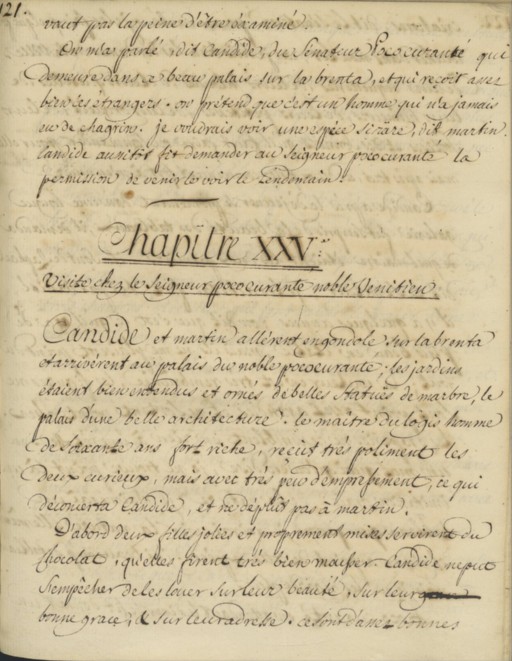 121.
vaut pas la peine d'être éxaminé.
On m'a parlé, dit Candide, du Senateur Pococuranté qui
demeure dans ce beau palais sur la brenta, et qui reçoit assez
bien les étrangers. on prétend que c'est un homme qui n'a jamais
eu de chagrin. je voudrais voir une espéce si rare, dit martin.
Candide aussitôt fit demander au Seigneur pococuranté la
permission de venir le voir le Lendemain.
Chapitre XXV.
Visite chez le Seigneur pococurante noble Venitien.
Candide et martin allérent en gondole sur la brenta
et arrivérent au palais du noble pococuranté. les jardins
étaient bien entendus et ornés de belles statuës de marbre, le
palais d'une belle architecture. le maitre du logis homme
de soixante ans fort riche, reçut trés poliment les
deux curieux, mais avec trés peu d'empressement, ce qui
déconcerta Candide, et ne déplut pas à martin.
D'abord deux filles jolies et proprement mises servirent du
chocolat, qu'elles firent trés bien mousser. Candide ne put
s'empêcher de les louer sur leur beauté, sur leur
bonne grace, & sur leur adresse. ce sont d'assez bonnes